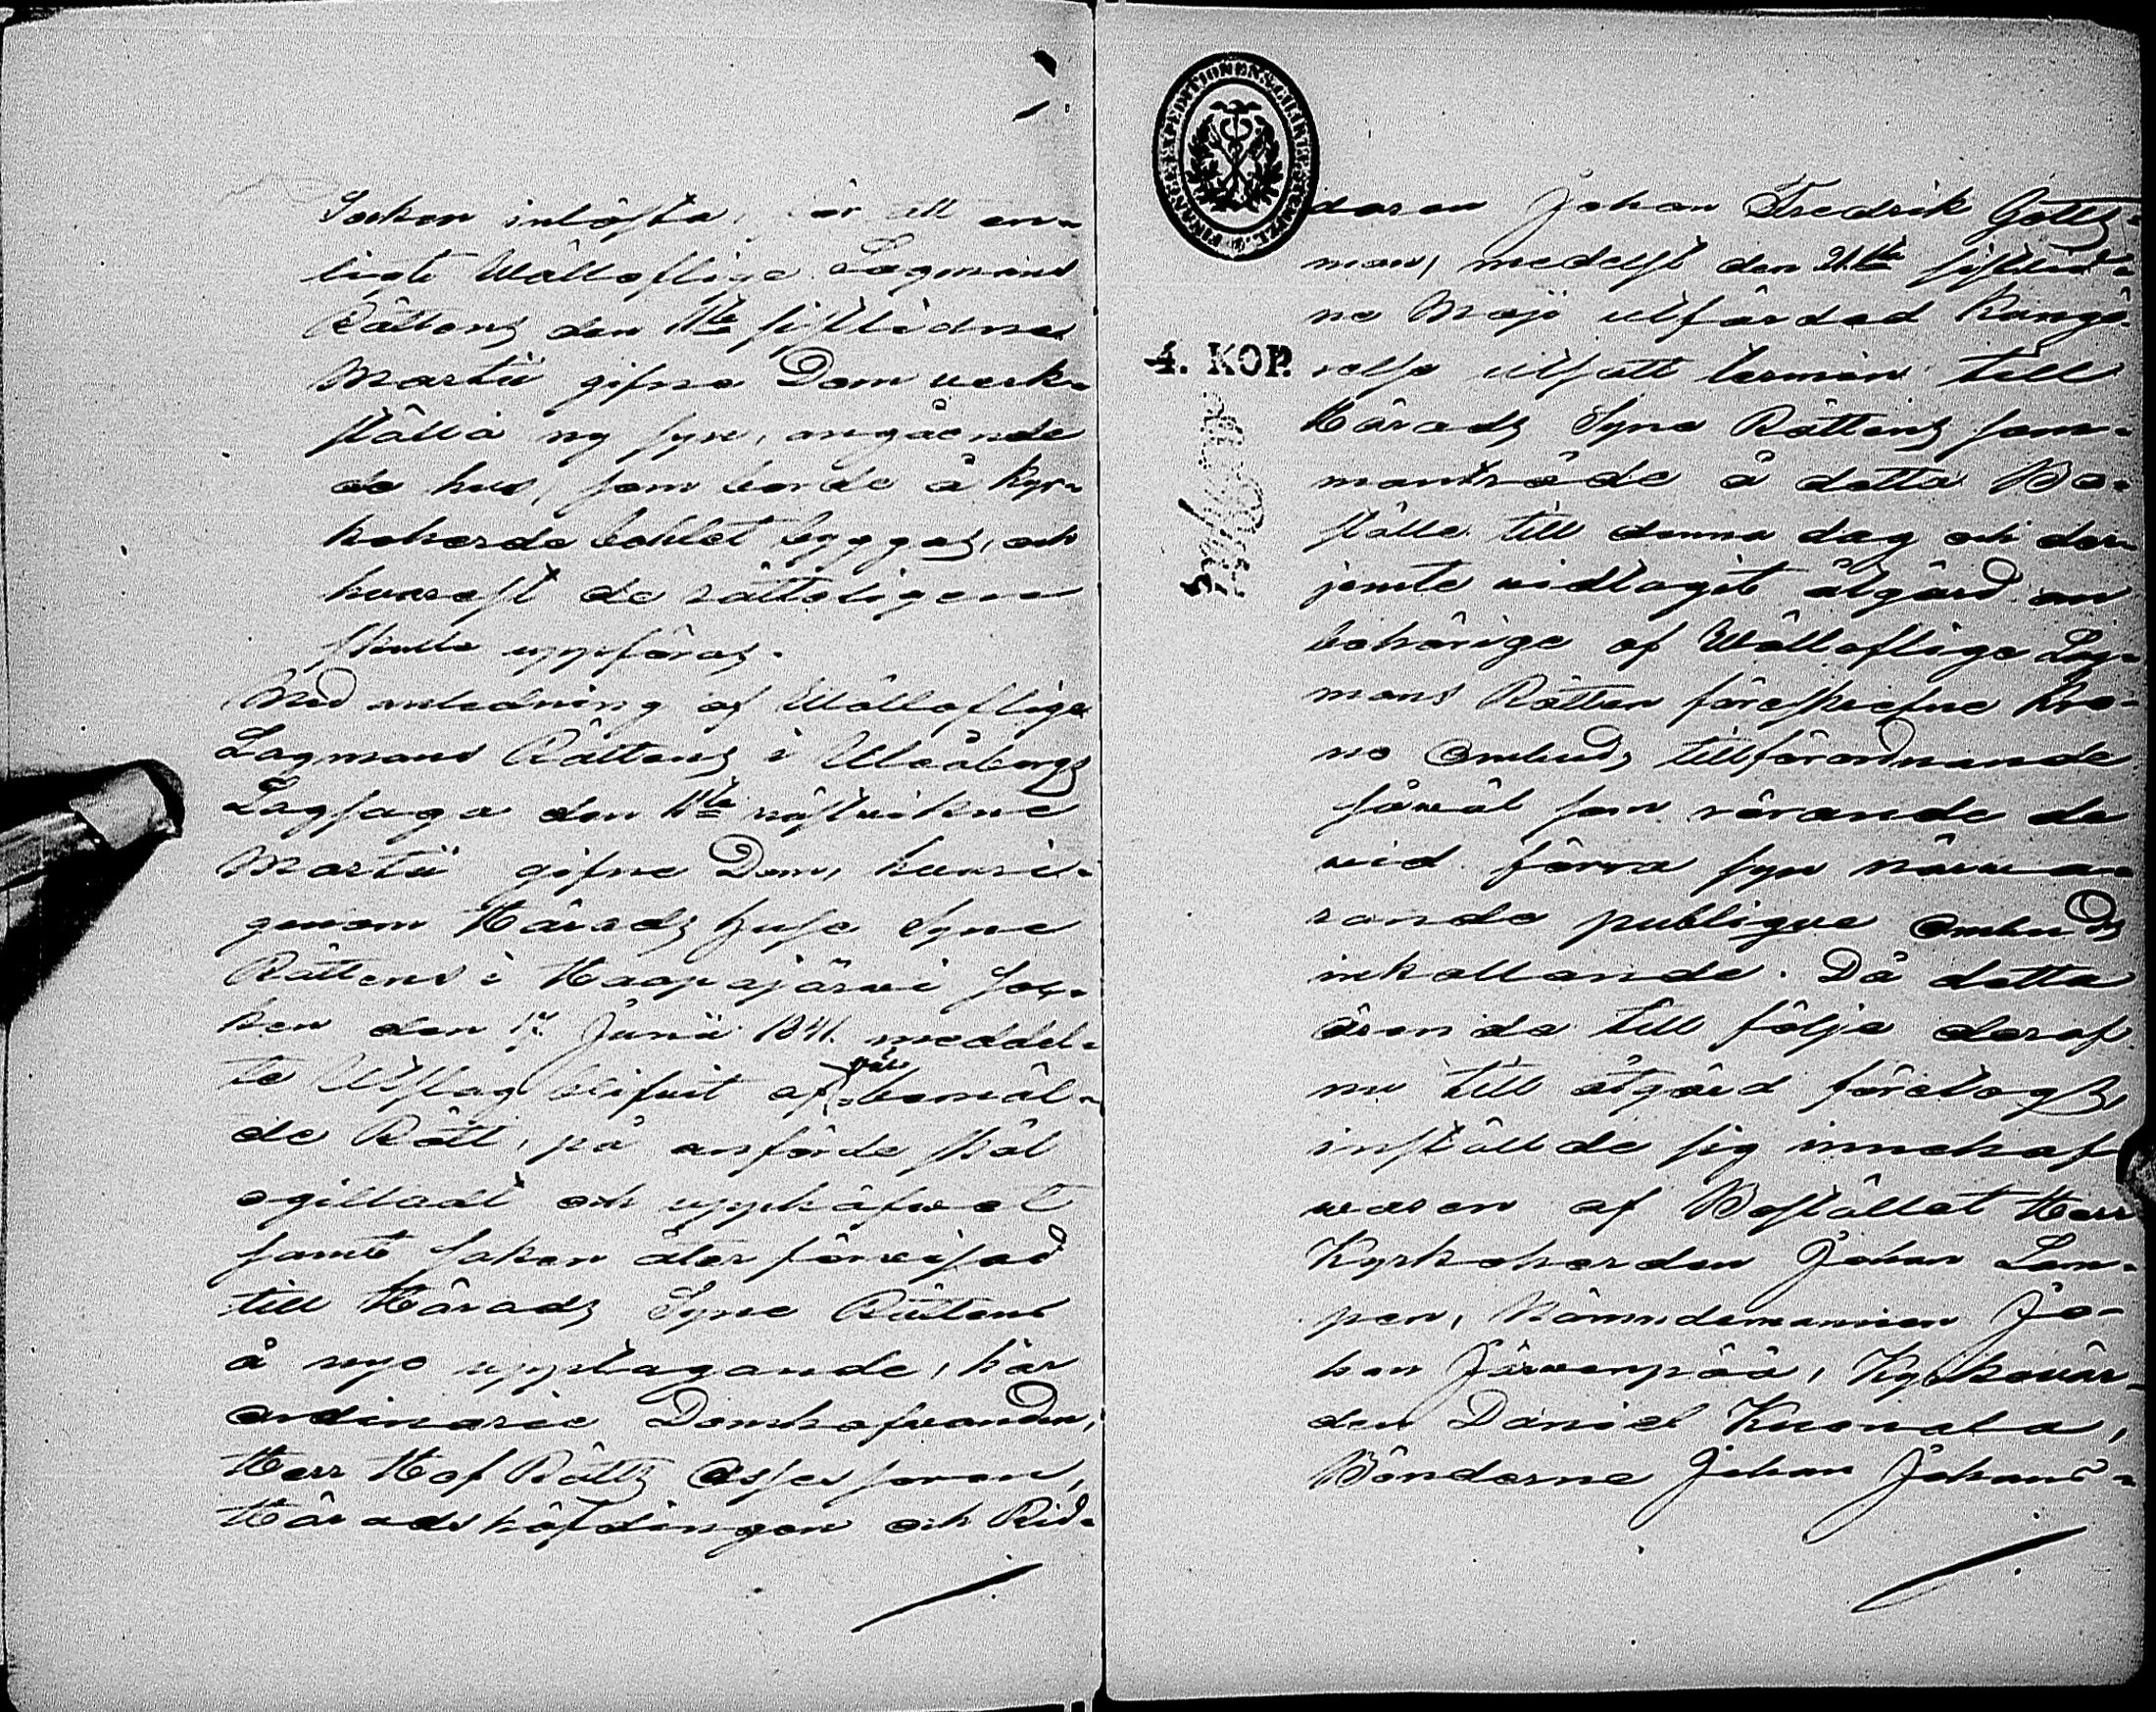 Socken inlösta, för att en-
ligt Wällofliga Lagmans
Rättens den 11te sistlidne
Martii gifne Dom verk-
ställa ny syn, angående
de hus, som borde å Kyr-
koherde bohlet byggas, och
hvarest de rätteligen
skulle uppföras.
Med anledning af Wällofliga
Lagmans Rättens i Uleåborgs
Lagsaga den 11te nästvikne
Martii gifne Dom, hvari-
genom Härads Huse Syne
Rättens i Haapajärwi Soc-
ken den 17 Junii 1841 meddel-
te Utslag blifvit af bemäl-
de Rätt, på anförde skäl
ogilladt och upphäfvet
samt saken återförvisad
till Härads Syne Rättens
å nyo upptagande, har
ordinarie Domhafvanden,
Herr Hof Rätts Assessoren,
Häradshöfdingen och Rid-
FINANCE EXPEDITIONENS CHARTÆ STEMPEL
4. KOP.
daren Johan Fredrik Gottz-
man, medelst den 21ste sistlid-
ne Maji utfärdad Kungö-
relse utsatt termin till
Härads Syne Rättens sam-
manträde å detta Bo-
ställe till denna dag och der-
jemte vidtagit åtgärd om
behörige af Wällofliga Lag-
mans Rätten föreskrefne Kro-
no Ombuds tillförordnande
såväl som rörande de
vid förra syn närva-
rande publique Ombuds
inkallande. Då detta
ärende till följe deraf
nu till åtgärd företogs,
inställde sig innehaf-
waren af Bostället Herr
Kyrkoherden Johan Lam-
pen, Nämndemannen Jo-
han Järwenpää, Kyrkovär-
den Daniel Kuonala,
Bönderne Johan Johans-